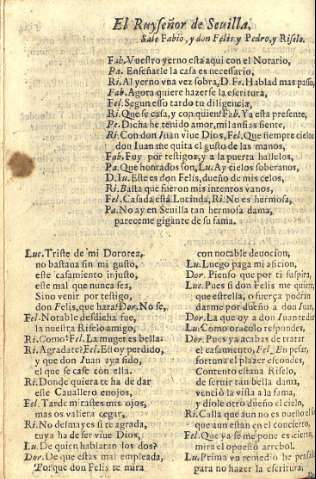 El Ruyseñor de Seuilla.
Sale Fabio, y don Felis, y Pedro, y Riselo.
Fab. Vuestro yerno està aqui con el Notario,
Pa. Enseñarle la casa es necessario,
Ri. Al yerno vna vez sobra, D. Fe. Hablad mas passo,
Fab. Agora quiere hazerse la escritura,
Fel. Segun esso tardo tu diligencia,
Ri. Que se casa, y con quien? Fab. Ya esta presente,
Pe. Dicha he tenido amor, mi ansias siente,
Ri. Con don Iuan viue Dios, Fel. Que siempre cielos
don Iuan me quita el gusto de las manos,
Fab. Foy por testigos, y a la puerta hallelos,
Pa. Que honrados son, Lu. Ay cielos soberanos,
D. Lu. Este es don Felis, dueño de mis celos,
Ri. Basta que fueron mis intentos vanos,
Fel. Casada està Lucinda, Ri. No es hermosa,
Pa. No ay en Seuilla tan hermosa dama,
pareceme gigante de su fama.
Luc. Triste de mi Dorotea,
no bastaua sin mi gusto,
este casamiento injusto,
este mal que nunca sea,
Sino venir por testigo,
don Felis, que harà? Dor. No se,
Fel. Notable desdicha fue,
la nuestra Riselo amigo,
Ri. Como? Fel. La muger es bella:
Ri. Agradate? Fel. Estoy perdido,
y que don Iuan aya sido,
el que se case con ella.
Ri. Donde quiera te ha de dar
este Cauallero enojos,
Fel. Tarde miraste mis ojos,
mas os valiera cegar,
Ri. No desmayes si te agrada,
tuya ha de ser viue Dios,
Lu. De quien hablaràn los dos?
Dor. De que estas mal empleada,
Porque don Felis te mira
con notable deuocion,
Lu. Luego paga mi aficion,
Dor. Pienso que por ti suspira,
Lu. Pues si don Felis me quiere,
que estrella, o fuerça podrà
darme por dueño a don Iuan,
Dor. La que oy a don Iuan te da
Lu. Como oraculo respondes,
Dor. Pues ya acabas de tratar
el casamiento, Fel. En pesar,
fortuna el plazer escondes,
Contento estaua Riselo,
de seruir tan bella dama,
venciò la vista a la fama,
y diole otro dueño el cielo,
Ri. Calla que aun no es su esposo
que aun estan en el concierto,
Fel. Que ya se me pone es cierto,
mira el opuesto arrebol.
Lu. Prima ya remedio he pensado
para no hazer la escritura,